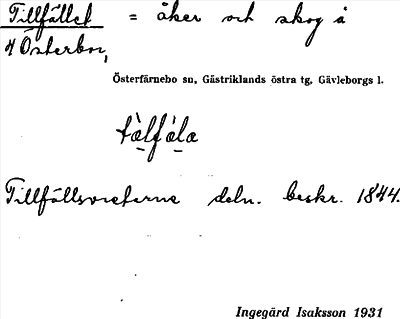 Tillfället = åker och skog å
4 Österbor,
Österfärnebo sn, Gästriklands östra tg, Gävleborgs l.
tålfäla
Tillfällsvreterna deln. beskr. 1844.
Ingegärd Isaksson 1931